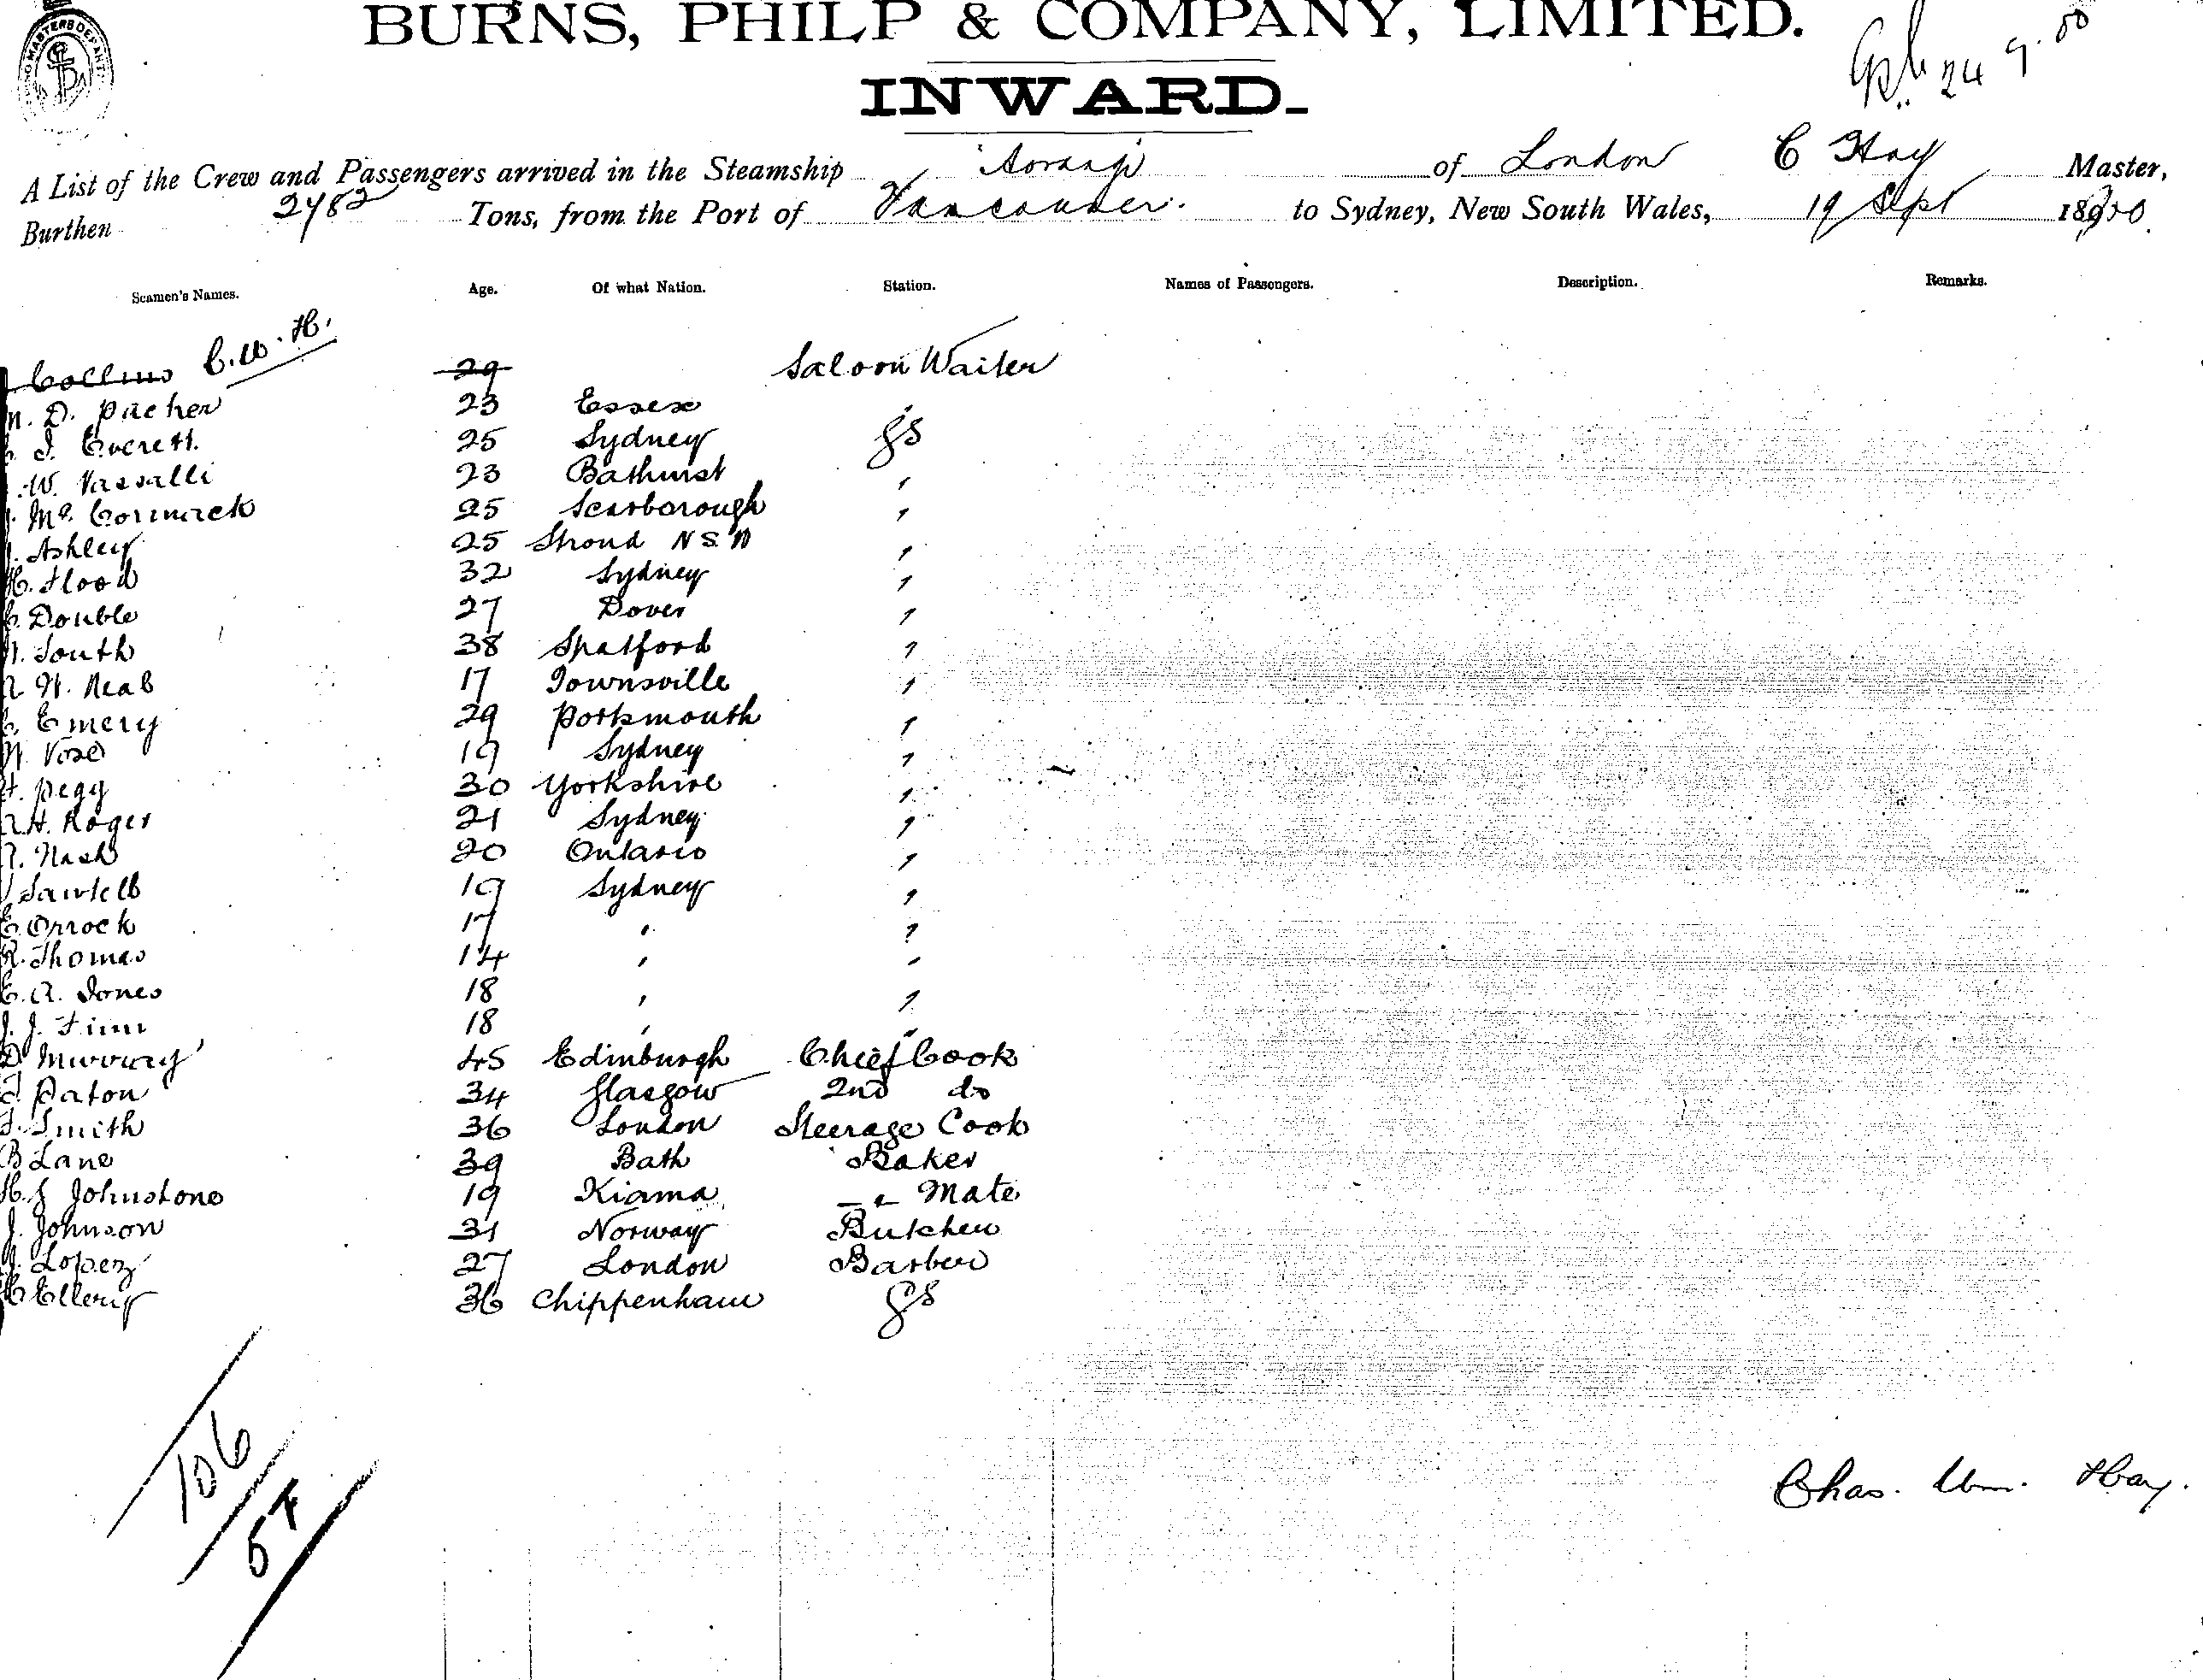 BURNS, PHILP & COMPANY, LIMITED.
24 9. 00
INWARD.
A List of the Crew and Passengers arrived in the Steamship Aorangi of London C Hay Master,
Burthen 2782 Tons, from the Port of Vancouver. to Sydney, New South Wales, 19 Sept 1900.
Seamen's Names. Age. Of what Nation. Station. Names of Passengers. Description. Remarks.
Collins C.W.H. 29 Saloon Waiter
D. Packer 23 Essex
J. Everett. 25 Sydney GS
W. Vassalli 23 Bathurst "
Mc. Cormack 25 Scarborough "
Ashley 25 Stroud NSW "
H. Flood 32 Sydney "
Double 27 Dover "
South 38 Spalford "
W. Neal 17 Townsville "
Emery 29 Portsmouth "
Vose 19 Sydney "
Pegg 30 Yorkshire "
H. Roger 21 Sydney "
Nash 20 Ontario "
Sawtell 19 Sydney "
Orrock 17 " "
R. Thomas 14 " "
A. Jones 18 " "
J. Finn 18 " "
D Murray 45 Edinburgh Chief Cook
Paton 34 Glasgow 2nd do
Smith 36 London Steerage Cook
B Lane 39 Bath Baker
H. J Johnstone 19 Kiama Mate
J. Johnson 31 Norway Butcher
Lopez 27 London Barber
Ellery 36 Chippenham GS
106
54
Chas. Wm. Hay.